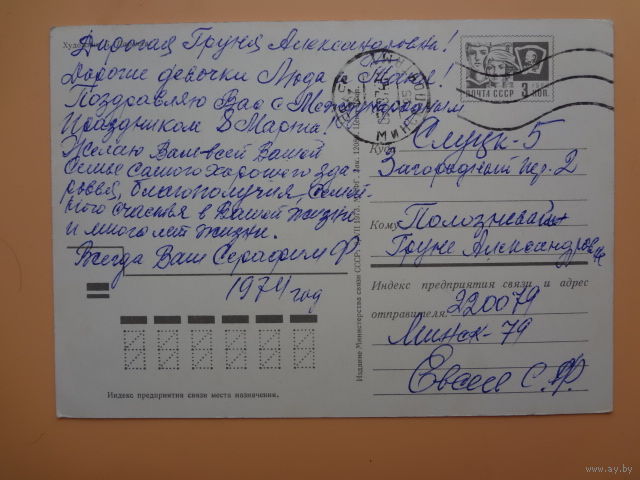 Дорогая Груня Александровна!
Дорогие девочки Люда и
Поздравляю Вас с Международным
Праздником 8 Марта!
Желаю Вам всей Вашей
Семье самого хорошего здо
ровья, благополучия, семей-
ного счастья в Вашей жизни
и много лет жизни.
Всегда Ваш Серафим Ф
1974 год
Индекс предприятия связи места назначения.
Издание Министерства связи СССР
ПОЧТА СССР 3 КОП.
МИНСК
Куда Слуцк-5
Загородный пер. 2
Кому
Груне Александровне
Индекс предприятия связи и адрес
отправителя 220079
Минск-79
С.Ф.
av.by